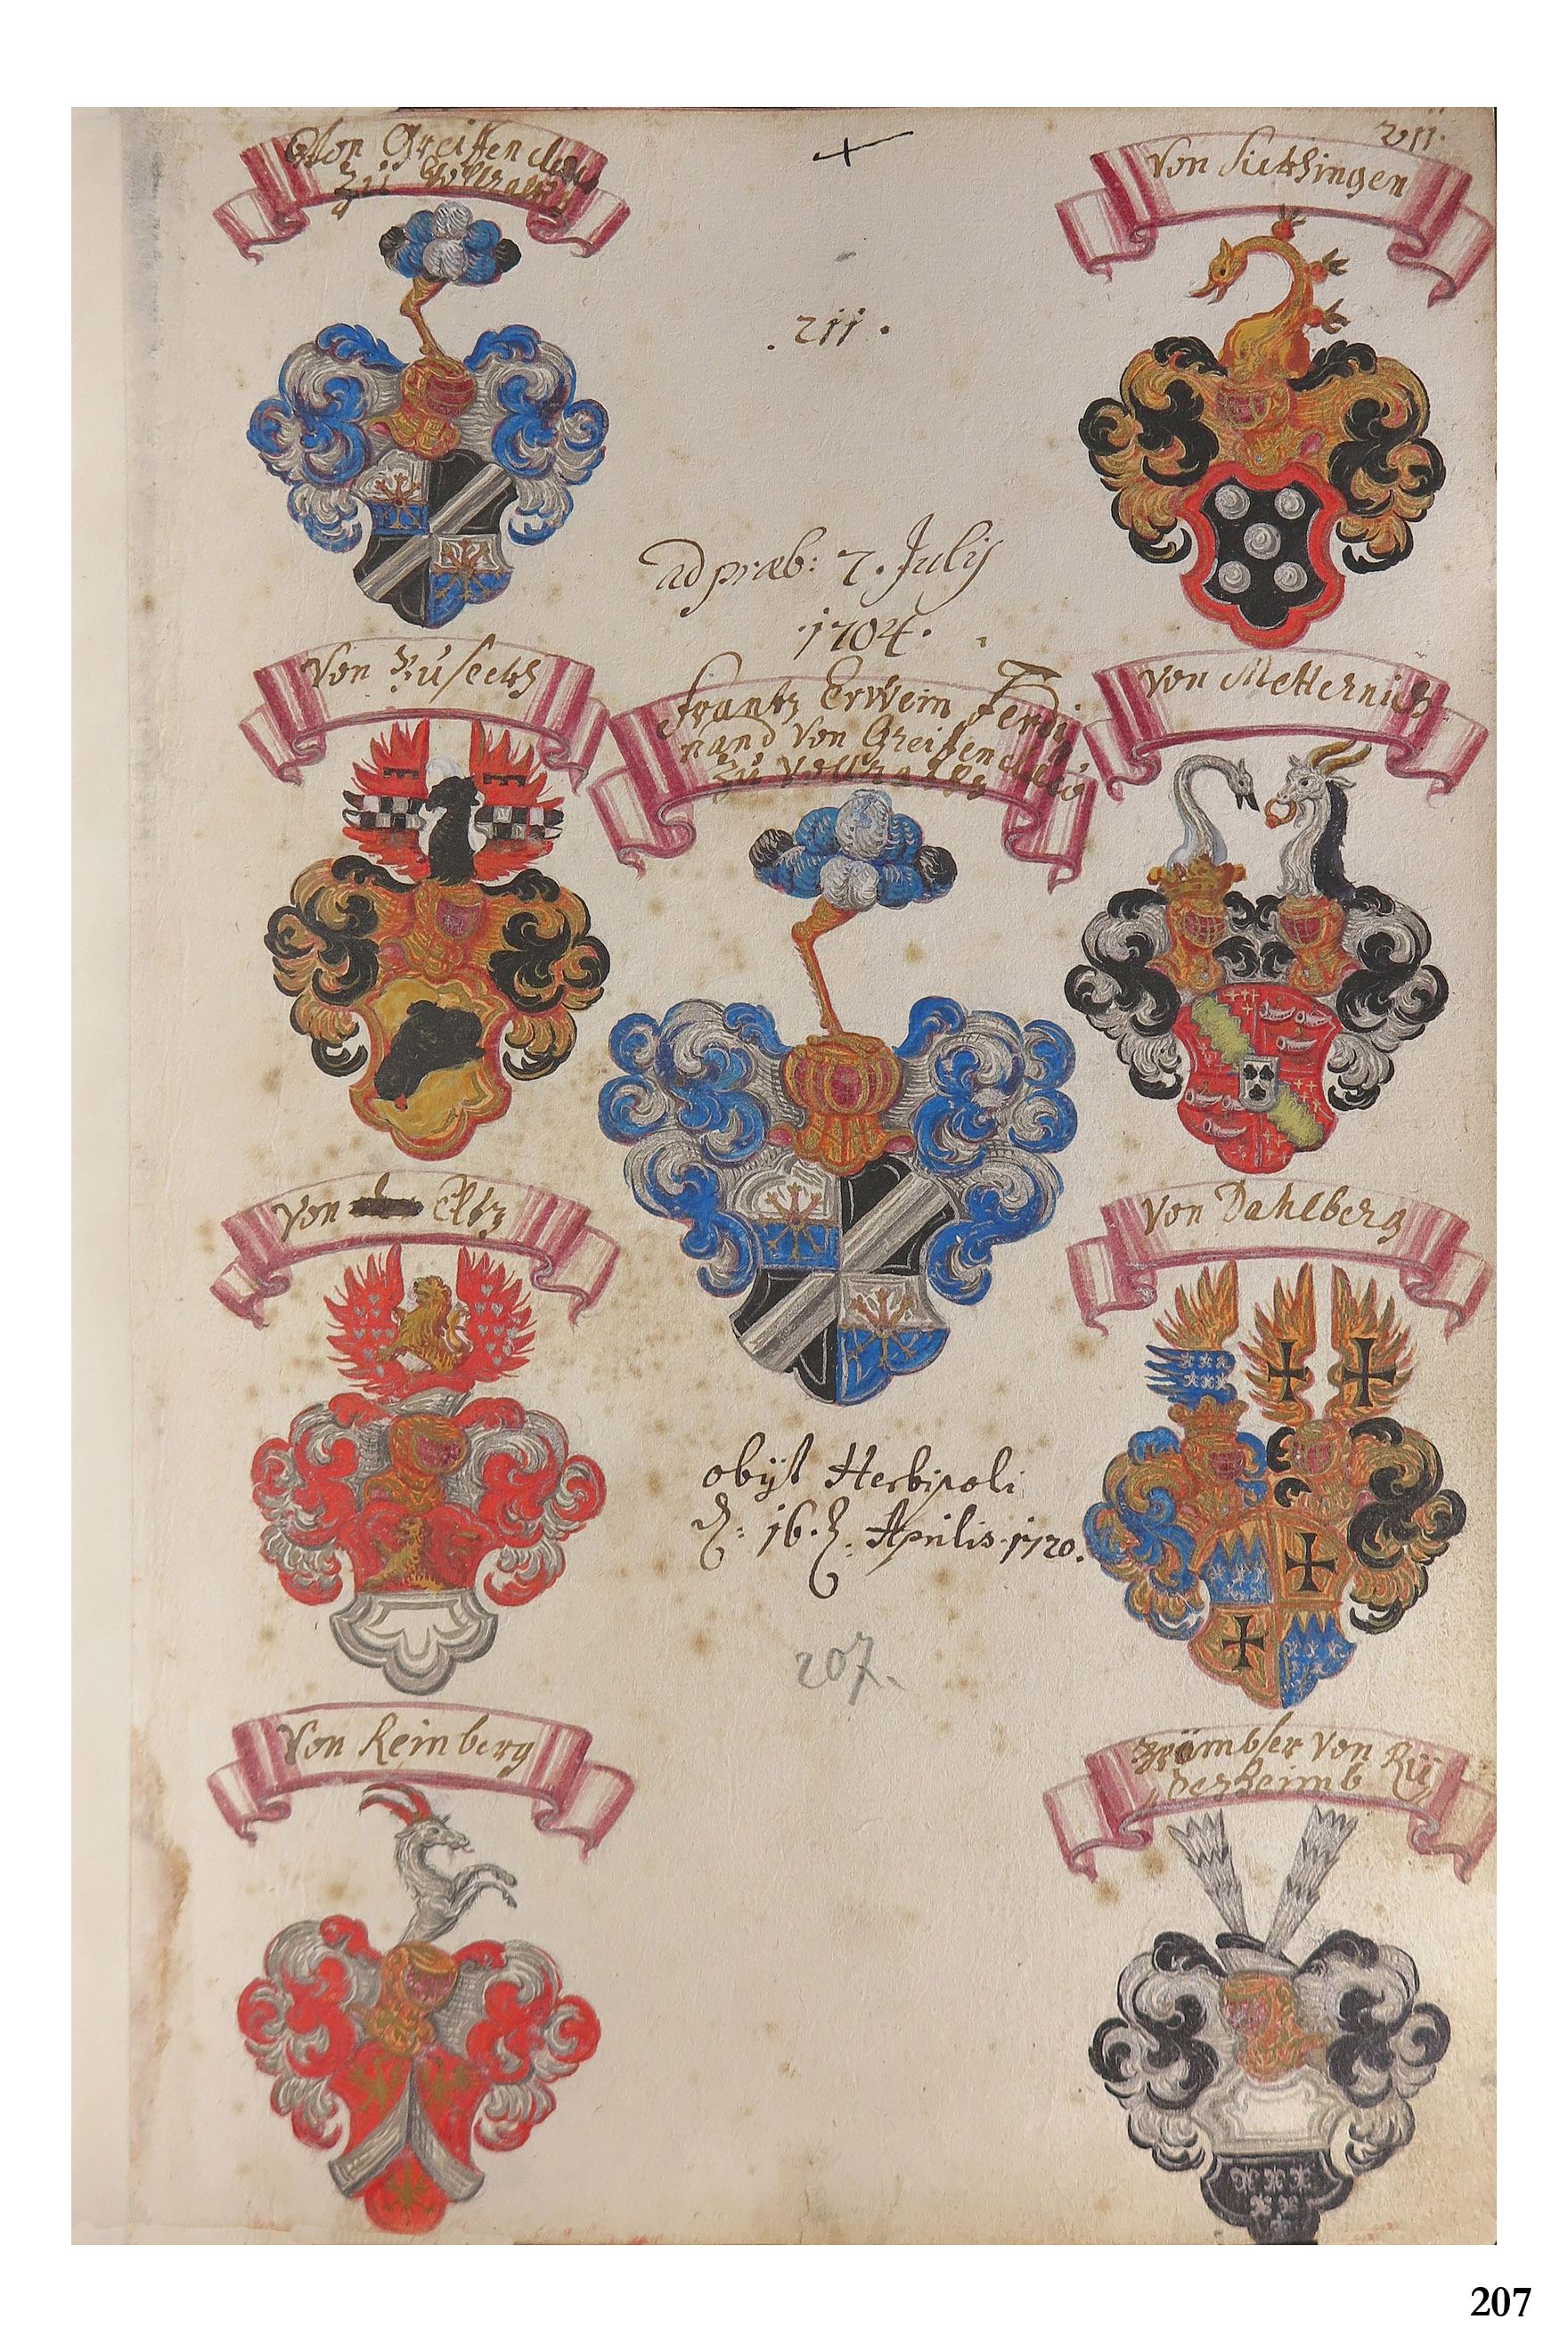 Von Greiffenclau
zü Vollraths
vii.
Von Sickhingen
.211.
ad præb: 7. Julij
.1704.
Von Buseckh
Frantz Erwein Ferdi
nand Von Greiffenclau
zü Vollraths
von Metternich
von Eltz
Von Dahlberg
obijt Herbipoli
d: 16. t. Aprilis 1720.
207.
Von Leinberg
Brömbser Von Rü
desheimb
207